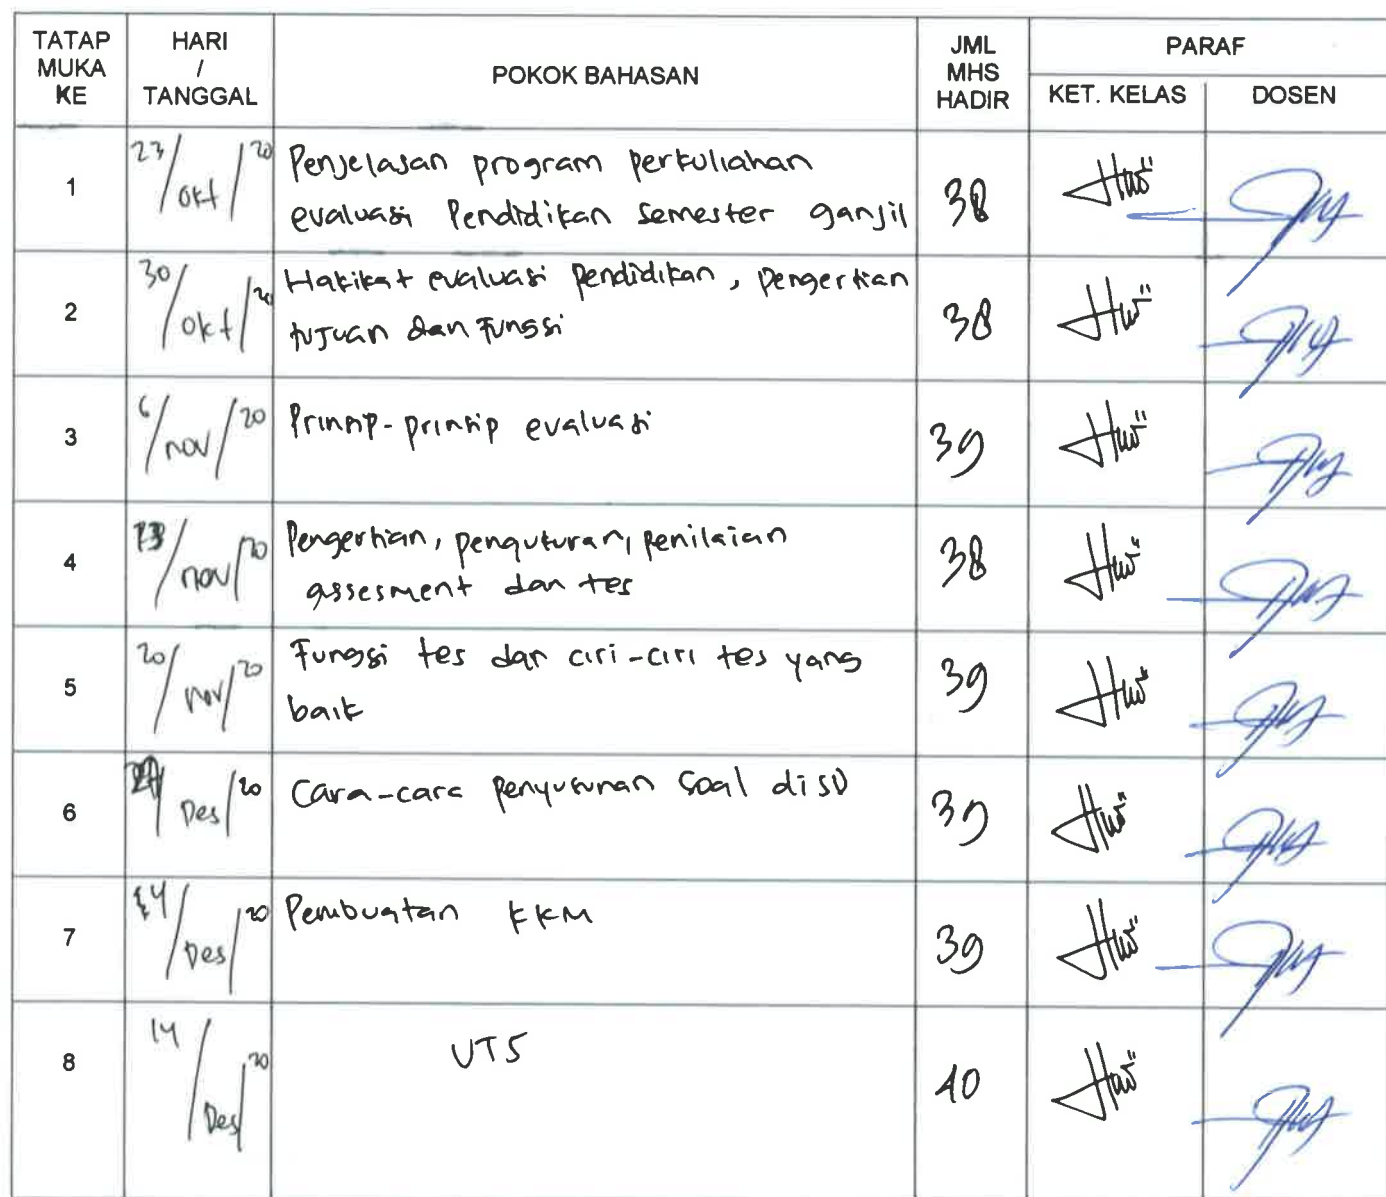 TATAP MUKA KE HARI / TANGGAL POKOK BAHASAN JML MHS HADIR PARAF
KET. KELAS DOSEN
1 23/okt/20 Penjelasan program perkuliahan 38
evaluasi Pendidikan semester ganjil
2 30/okt/20 Hakikat evaluasi pendidikan, pengertian 38
tujuan dan Fungsi
3 6/nov/20 Prinsip-prinsip evaluasi 39
4 13/nov/20 Pengertian, pengukuran, penilaian 38
assesment dan tes
5 20/nov/20 Fungsi tes dan ciri-ciri tes yang 39
baik
6 Des/20 Cara-cara penyusunan soal di SD 39
7 4/Des/20 Pembuatan KKM 39
8 14/Des/20 UTS 40